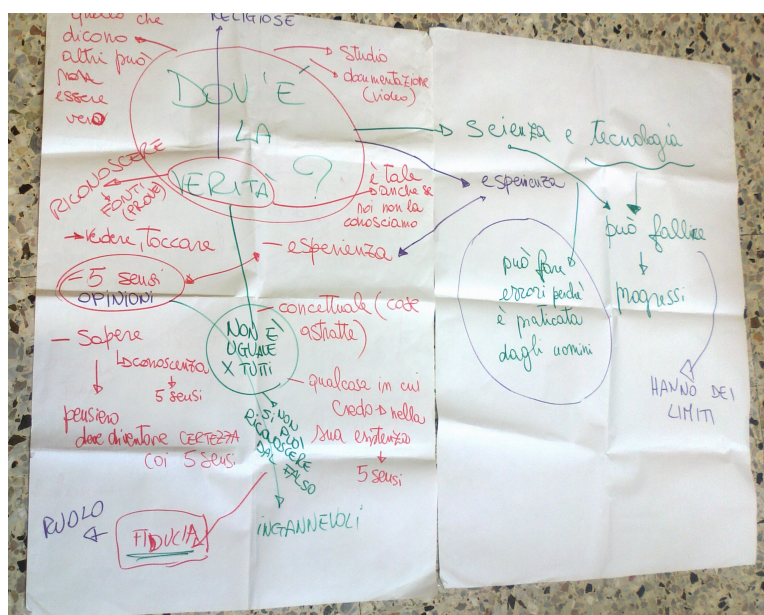 RELIGIOSE
quello che
dicono
altri può
non
essere
vero
studio
documentazione
(video)
DOV'È
LA
VERITÀ ?
RICONOSCERE
FONTI
(PROVE)
è tale
anche se
noi non la
conosciamo
→ vedere, toccare
- 5 sensi
OPINIONI
- esperienza
- concettuale (cose
astratte)
NON È
UGUALE
X TUTTI
- Sapere
conoscenza
5 sensi
pensiero
deve diventare CERTEZZA
coi 5 sensi
- qualcosa in cui
credo → nella
sua esistenza
5 sensi
SI NON
PUOI
RICONOSCERE
DAL FALSO
INGANNEVOLI
FIDUCIA
RUOLO
scienza e tecnologia
esperienza
può fallire
progressi
può fare
errori perché
è praticata
dagli uomini
HANNO DEI
LIMITI